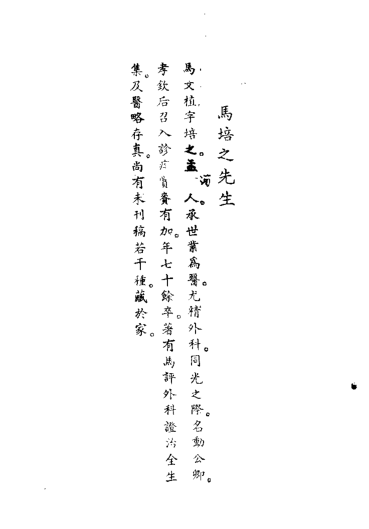 馬培之先生
馬文植字培之。孟河人。承世業爲醫。尤精外科。同光之際。名動公卿。
孝欽后召入診疾賞賚有加。年七十餘卒。著有馬評外科證治全生
集。及醫略存真。尚有未刊稿若干種。藏於家。